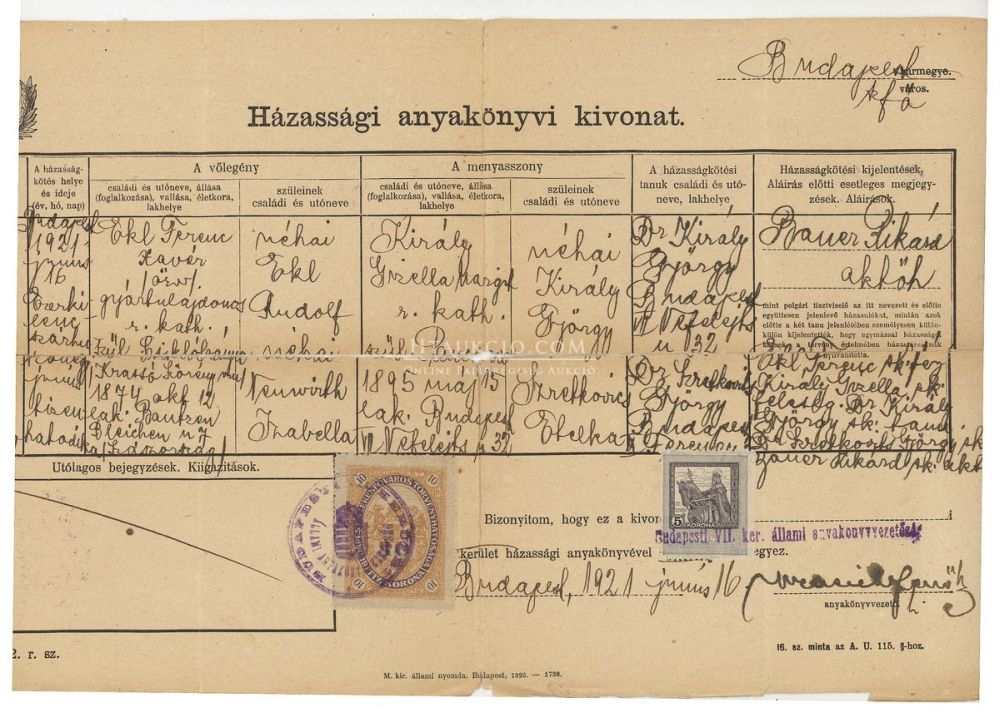 Budapest vármegye.
szfő város.
Házassági anyakönyvi kivonat.
A házasság-
kötés helye
és ideje
(év, hó, nap)
A vőlegény
családi és utóneve, állása
(foglalkozása), vallása, életkora,
lakhelye
szüleinek
családi és utóneve
A menyasszony
családi és utóneve, állása
(foglalkozása), vallása, életkora,
lakhelye
szüleinek
családi és utóneve
A házasságkötési
tanuk családi és utó-
neve, lakhelye
Házasságkötési kijelentések.
Aláírás előtti esetleges megjegy-
zések. Aláírások.
Budapest
1921
június
16
Ezerki-
lenc
június
tizen
hatodika
Ekl Ferenc
Xavér
gyártulajdonos
r. kath.
szül.
1874 okt 12
lak. Bautzen
Bleichen u 7
néhai
Ekl
Rudolf
néhai
Neuwirth
Izabella
Király
Gizella Margit
r. kath.
szül.
1895 maj 15
lak. Budapest
VII Nefelejts u 32
néhai
Király
György
Sztetkovics
Etelka
Dr Király
György
Budapest
VII Nefelejts
u 32
Dr Sztetkovits
György
Budapest
Bauer Rikárd
aktőh
mint polgári tisztviselő az itt nevezett és előtte
együttesen jelenlevő házasulókat, miután azok
előtte a két tanu jelenlétében személyesen külön-
külön kijelentették, hogy egymással házasságot
kötnek, a törvény értelmében házastársaknak
nyilvánította.
Ekl Ferenc sk. férj
Király Gizella sk.
feleség. Dr. Király
György sk. tanu
Dr Sztetkovits György sk
Bauer Rikárd sk.
HUAUKCIO.COM
Online Papírrégiség Aukció
Utólagos bejegyzések. Kiigazítások.
10 10
KORONA
10 10
5 KORONA
Bizonyitom, hogy ez a kivon i
Budapesti VII. ker. állami anyakönyvvezetőség
kerület házassági anyakönyvével egyez.
Budapest, 1921 június 16
anyakönyvvezető
h.
2. r. sz.
16. sz. minta az A. U. 115. §-hoz.
M. kir. állami nyomda. Budapest, 1920. — 1738.